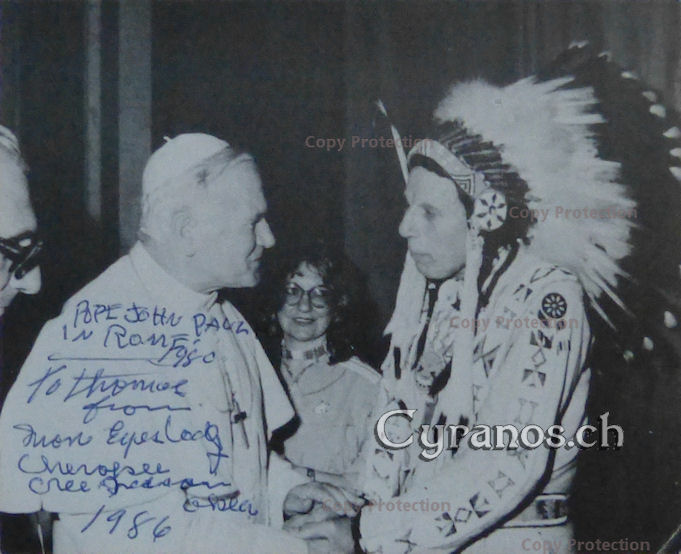 Copy Protection
Copy Protection
Copy Protection
POPE JOHN PAUL
IN ROME
1980
1980
To Thomas
from
Iron Eyes Cody
Cherokee
Cree Indian
1986
Cyranos.ch
Copy Protection
Copy Protection